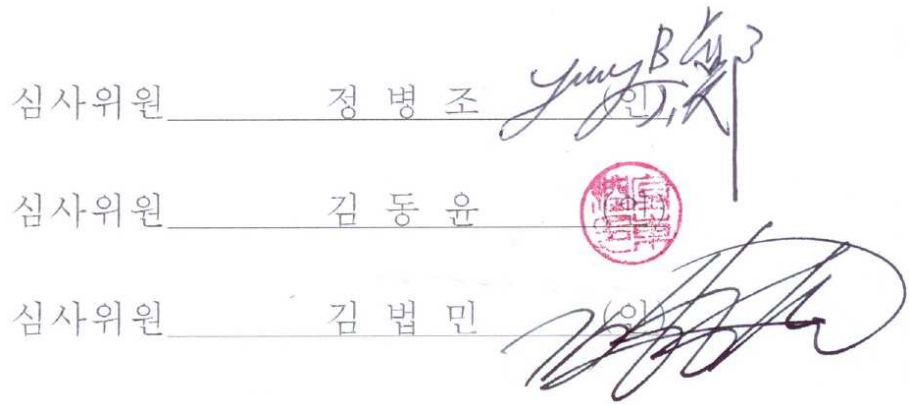 심사위원 정 병 조 (인)
심사위원 김 동 윤 (인)
심사위원 김 법 민 (인)